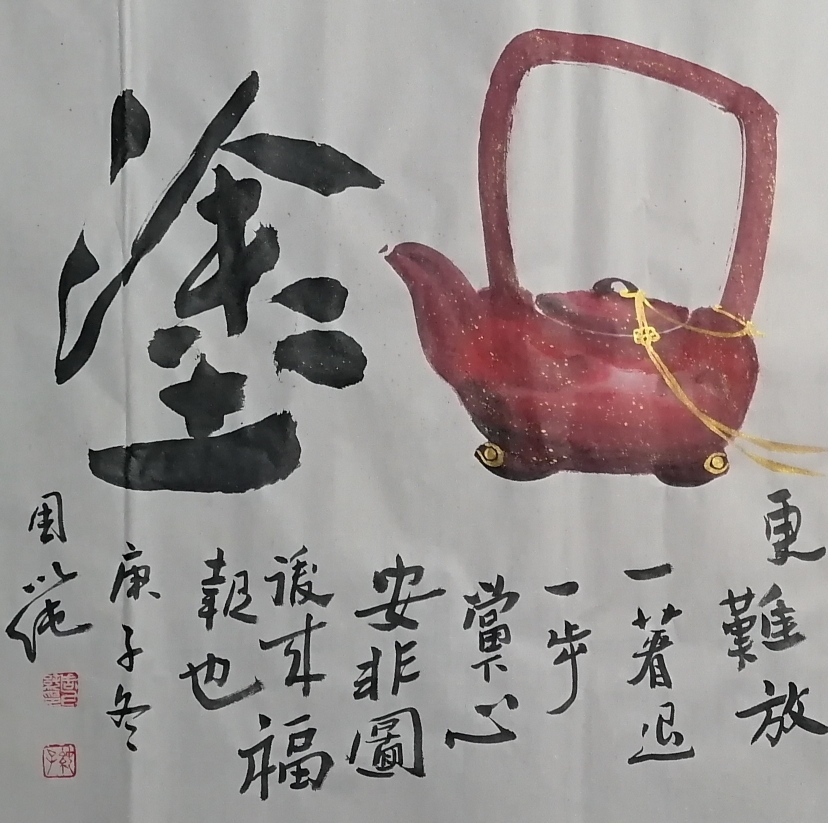 塗
更難放
一著退
一步
當下心
安非圖
後来福
報也
庚子冬
周